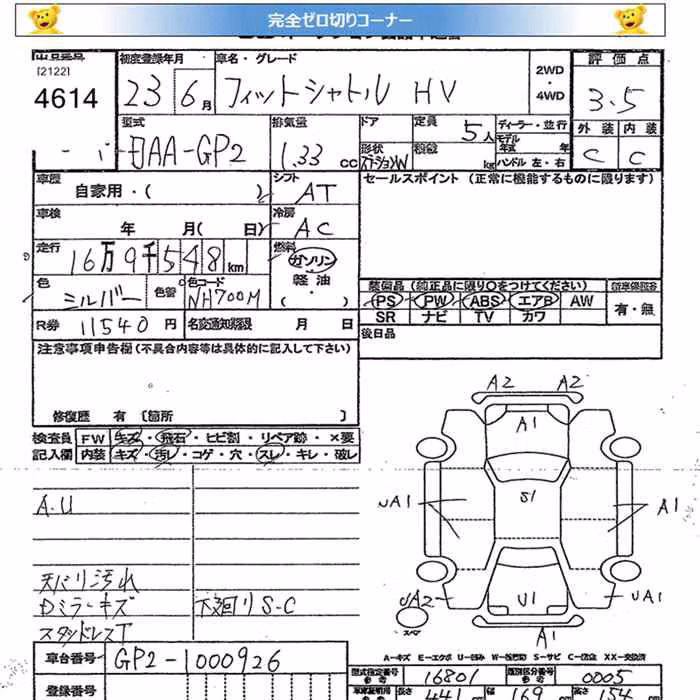 完全ゼロ切りコーナー
[2122]
4614
初度登録年月
23 6月
車名・グレード
フィットシャトル HV
2WD
・
4WD
評価点
3.5
外装 内装
C C
型式
DAA-GP2
排気量
1.33 cc
ドア
形状
定員
5人
積載
kg
ディーラー・並行
モデル年式 年
ハンドル 左・右
車歴
自家用・( )
シフト
AT
セールスポイント (正常に機能するものに限ります)
車検
年 月( 日)
冷房
AC
走行
16万9千548km
燃料
ガソリン
軽油
・( )
色
シルバー
色替
色コード
NH700M
装備品 (純正品に限り○をつけてください)
PS・PW・ABS・エアB・AW
SR ナビ TV カワ
有・無
R券 11540円
名変通知期限 月 日
後日品
注意事項申告欄(不具合内容等は具体的に記入して下さい)
修復歴 有 [箇所 ]
検査員記入欄
FW キズ・飛石・ヒビ割・リペア跡・×要
内装 キズ・汚レ・コゲ・穴・スレ・キレ・破レ
A.U
天バリ汚れ
Dミラーキズ 下廻りS-C
スタッドレスT
A2 A2
A1
S1
UA1
A1
UA2
U1
UA1
A1
スペア
A-キズ E-エクボ U-凹み W-波打ち S-サビ C-腐食 XX-交換済
車台番号 GP2-1000926
登録番号
型式指定番号 16801
類別区分番号 0005
長さ 441 cm 幅 169 cm 高さ 154 cm